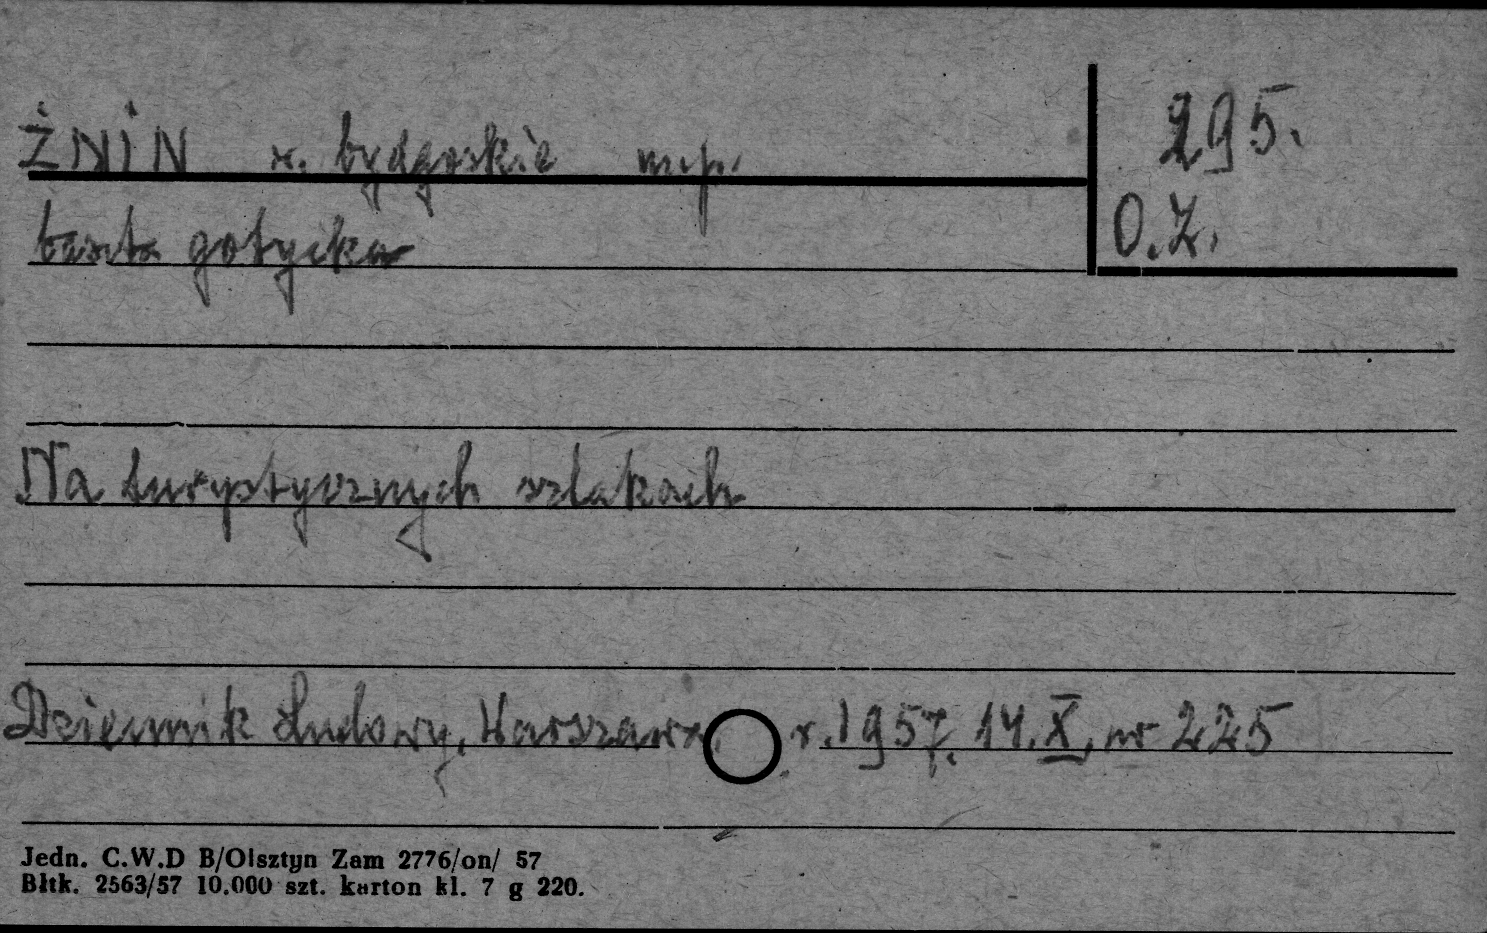 ŻNIN w. bydgoskie mp.
295.
O.Z.
baszta gotycka
Na turystycznych szlakach
Dziennik Ludowy, Warszawa, r. 1957, 14. X, nr 225
Jedn. C.W.D B/Olsztyn Zam 2776/on/ 57
Bltk. 2563/57 10.000 szt. karton kl. 7 g 220.